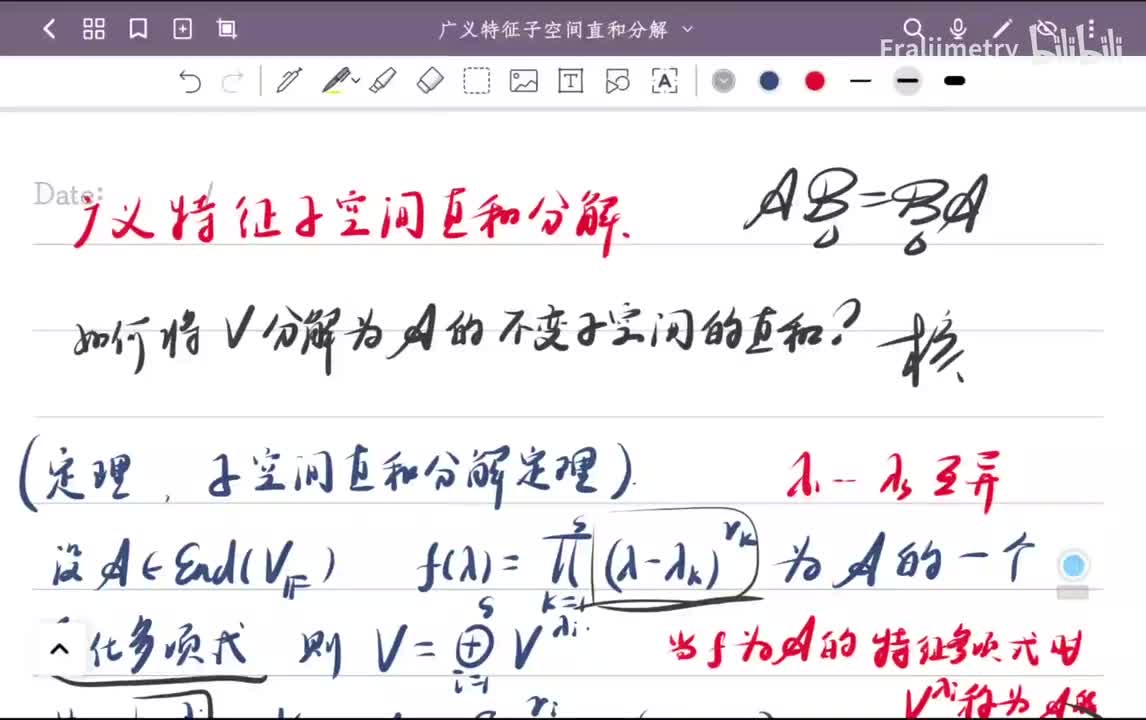 广义特征子空间直和分解
Fraljimetry bilibili
Date:
广义特征子空间直和分解.
AB=BA
如何将V分解为A的不变子空间的直和?
核
(定理, 子空间直和分解定理).
λ₁…λₛ互异
设A∈End(V_F) f(λ)=∏_{k=1}^{s}(λ-λ_k)^{r_k} 为A的一个
化多项式 则 V=⊕_{i=1}^{s}V^{λ_i}.
当f为A的特征多项式时
V^{λ_i}称为A的